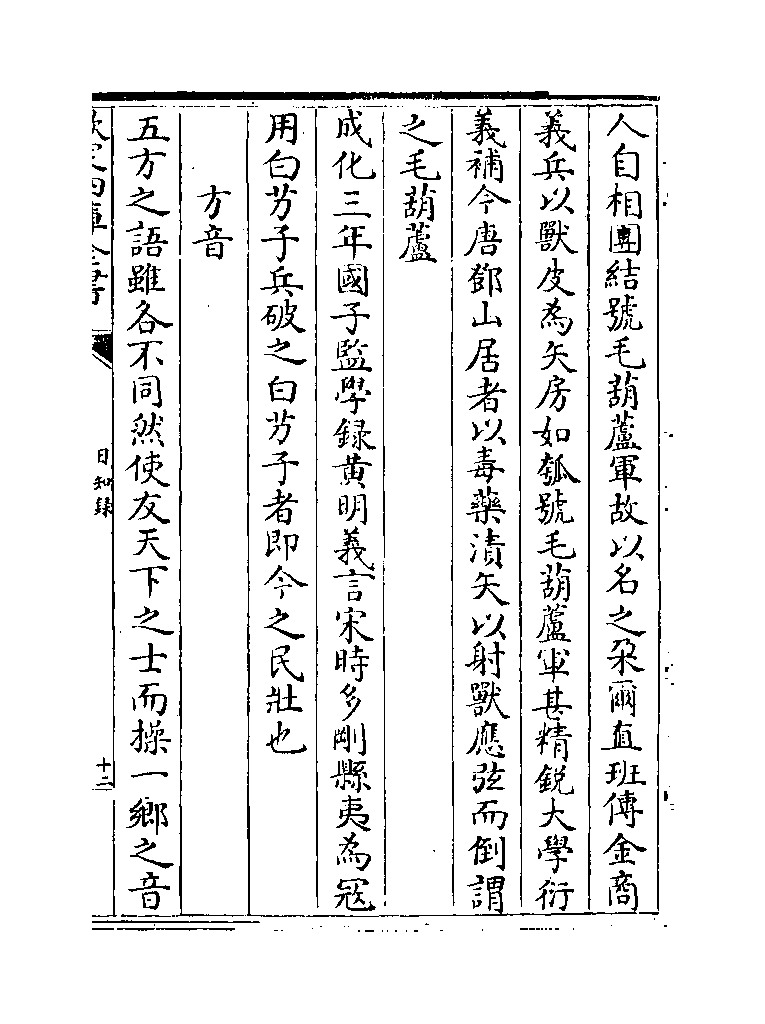 人自相團結號毛葫蘆軍故以名之朶爾直班傳金商
義兵以獸皮為矢房如瓠號毛葫蘆軍甚精鋭大學衍
義補今唐鄧山居者以毒藥漬矢以射獸應弦而倒謂
之毛葫蘆
成化三年國子監學録黄明義言宋時多剛縣夷為冦
用白艻子兵破之白艻子者即今之民壯也
方音
五方之語雖各不同然使友天下之士而操一鄉之音
欽定四庫全書
日知録
十二